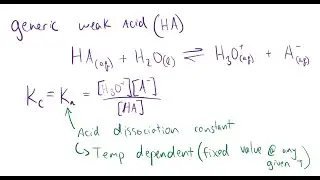 generic weak Acid (HA)
HA(aq) + H2O(l) ⇌ H3O+(aq) + A-(aq)
Kc = Ka = [H3O+][A-] / [HA]
Acid dissociation constant
↳ Temp dependent (fixed value @ any given T)